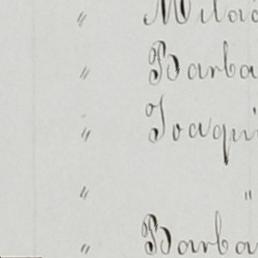 " Milà
" Barba
" Joaqui
" "
" Barba